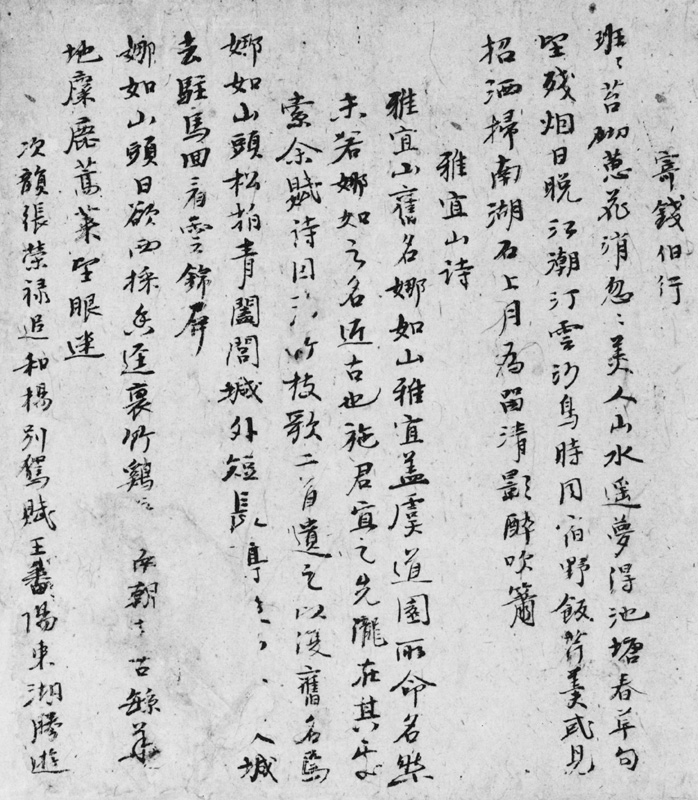 寄錢伯行
班〻苔砌蔥花消忽〻美人山水遥夢得池塘春草句
望殘烟日晚江潮汀雲沙鳥時同宿野飯芹羹或見
招洒掃南湖石上月為留清影醉吹簫
雅宜山詩
雅宜山舊名娜如山雅宜蓋虞道園所命名然
未若娜如之名近古也施君宜之先隴在其下
索余賦詩因竹枝歌二首遺之以復舊名焉
娜如山頭松栢青闔閭城外短長亭入城
去駐馬回看雲錦屏
娜如山頭日欲西採香逕裏竹雞
地麋鹿望眼迷
次韻張榮祿追和楊別駕賦王番陽東湖勝遊